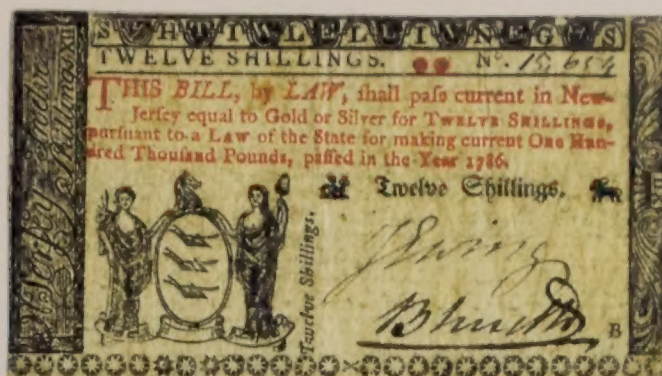 TWELVE SHILLINGS. Nº. 15,654
THIS BILL, by LAW, shall paſs current in New-
Jerſey equal to Gold or Silver for TWELVE SHILLINGS,
purſuant to a LAW of the State for making current One Hun-
dred Thouſand Pounds, paſſed in the Year 1786.
Twelve Shillings.
Twelve Shillings.
JEwing
B
N. Jerſey Twelve
Shillings XII